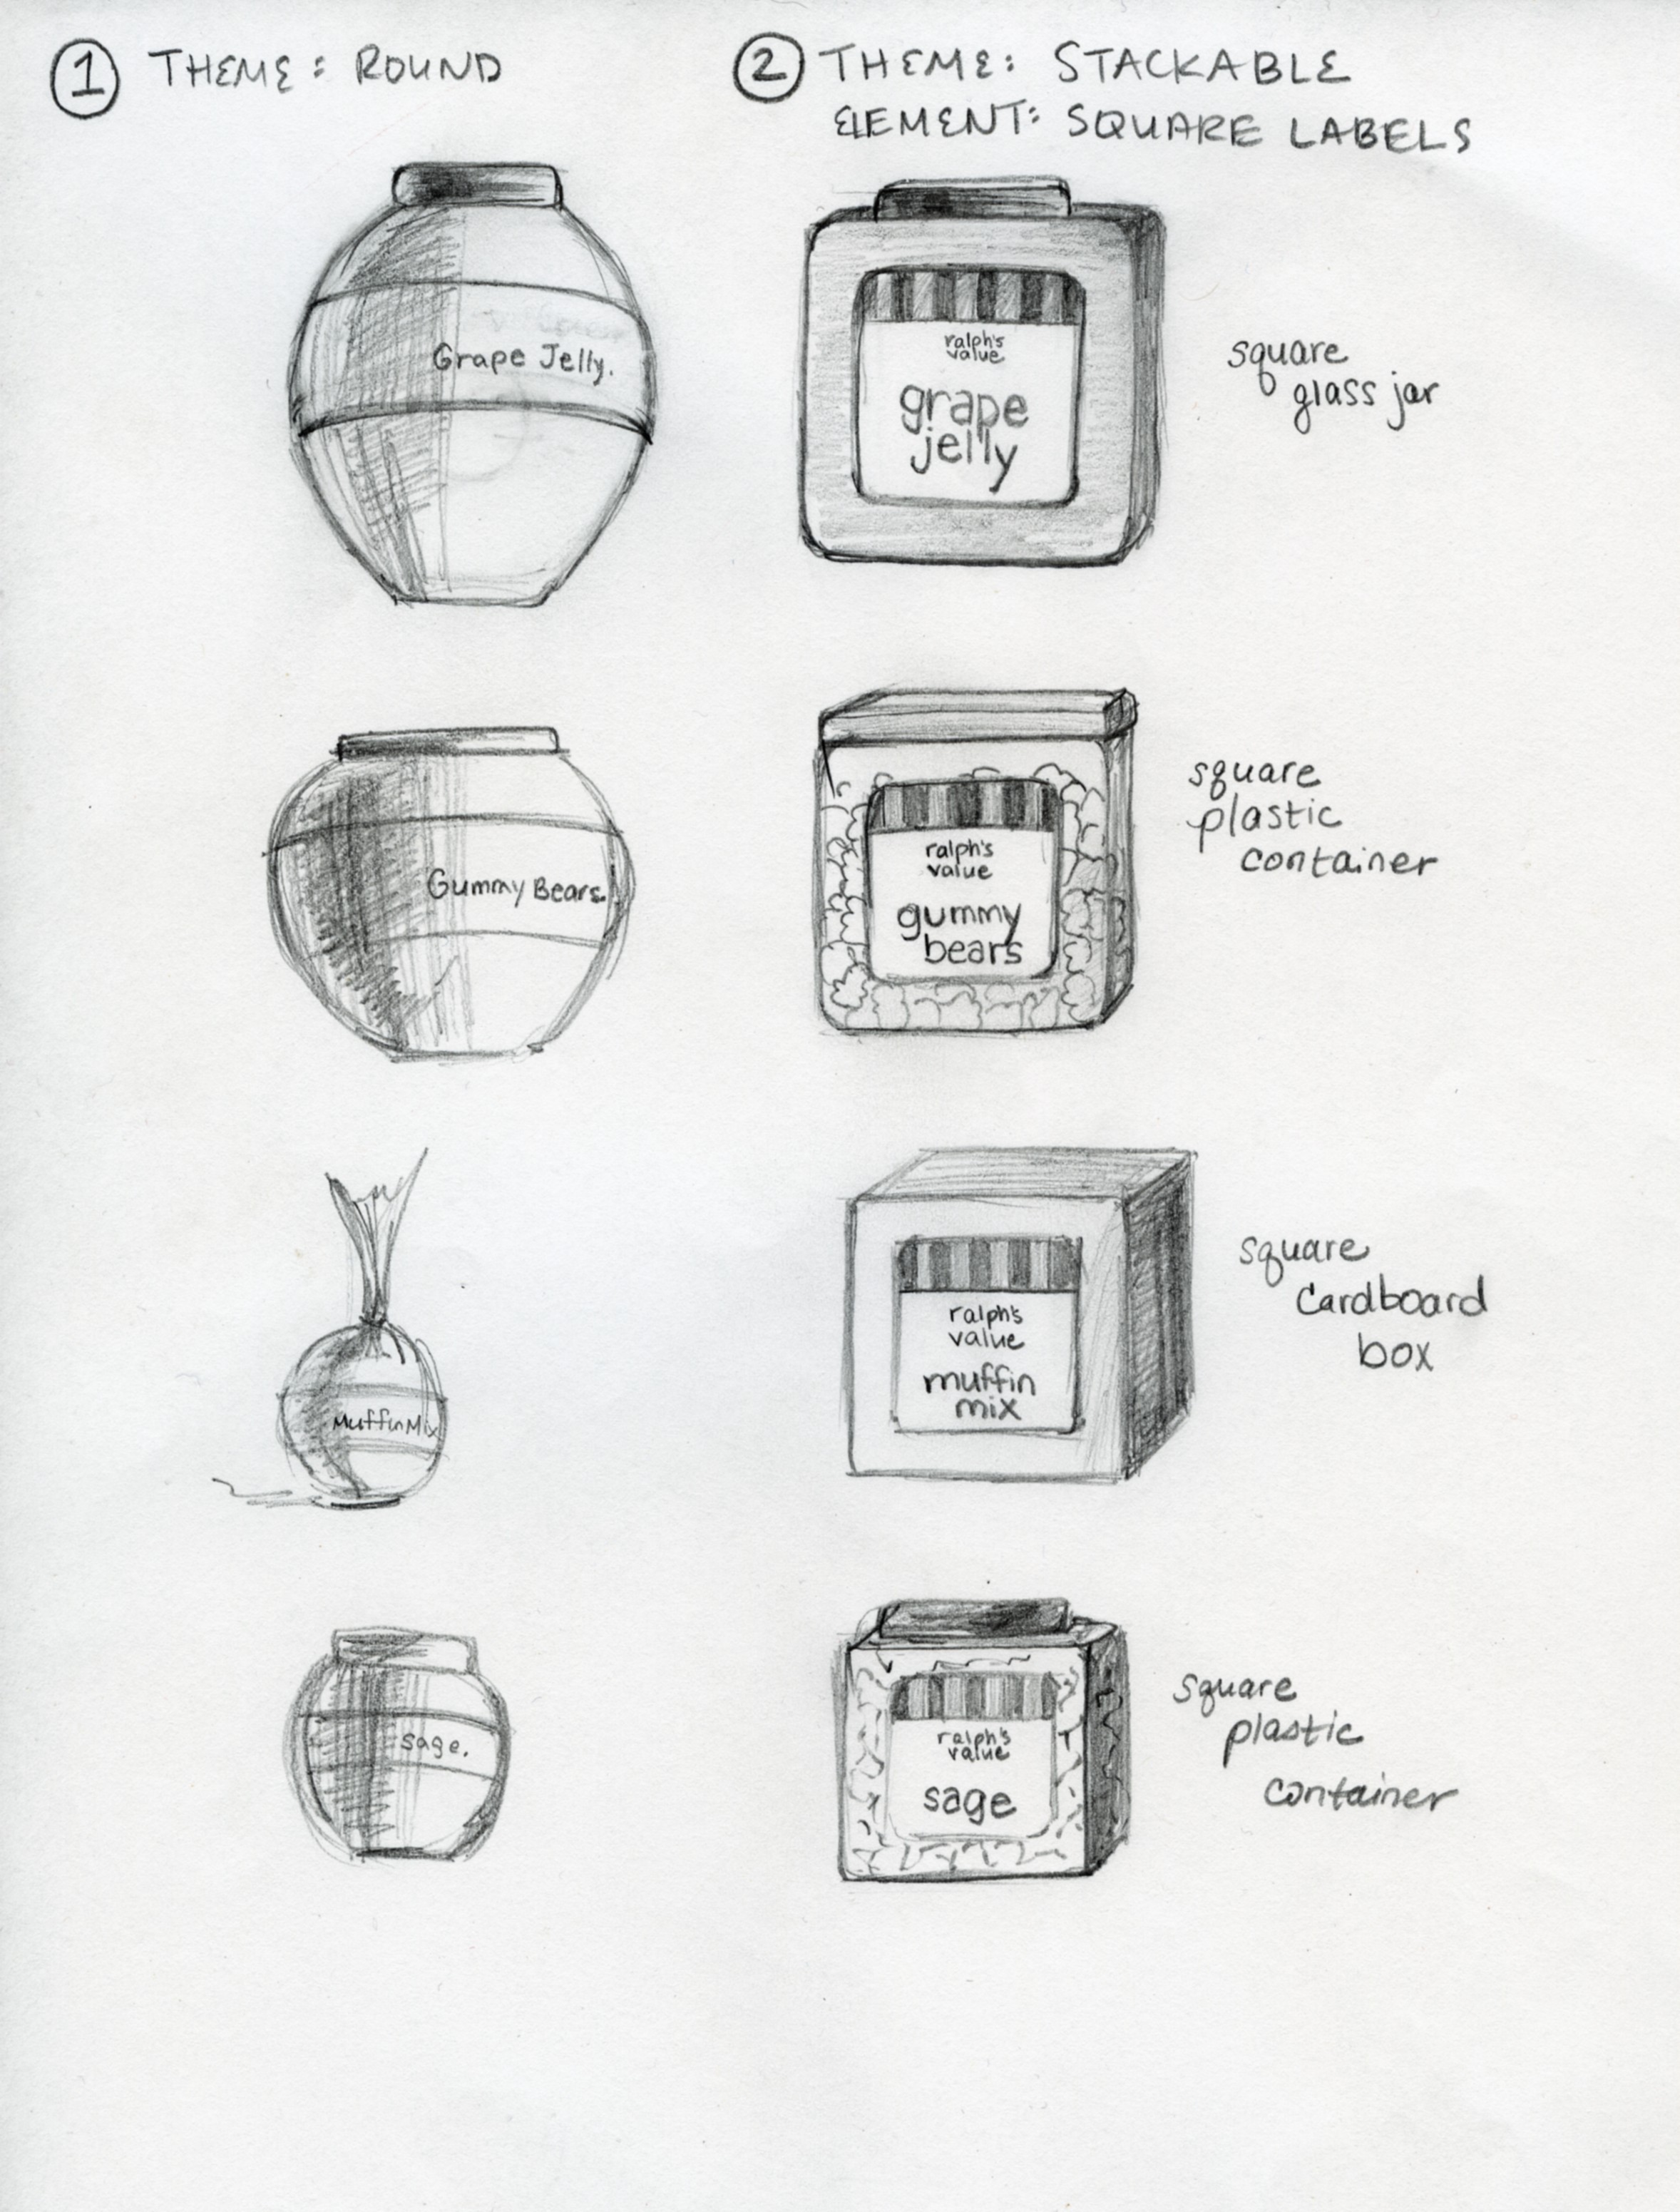 1 THEME: ROUND
Grape Jelly.
Gummy Bears.
Muffin Mix
sage.
2 THEME: STACKABLE
ELEMENT: SQUARE LABELS
ralph's
value
grape
jelly
square
glass jar
ralph's
value
gummy
bears
square
plastic
container
ralph's
value
muffin
mix
square
cardboard
box
ralph's
value
sage
square
plastic
container